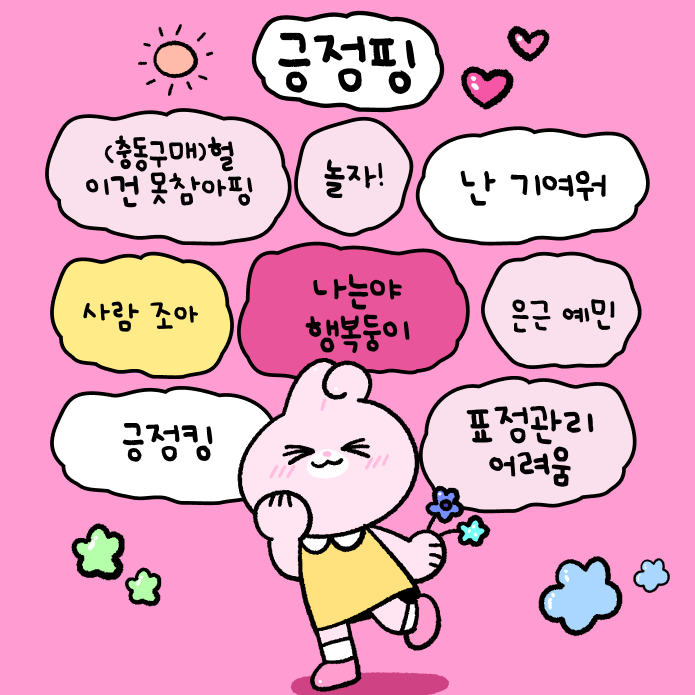 긍정핑
(충동구매)헐
이건 못참아핑
놀자!
난 기여워
사람 조아
나는야
행복둥이
은근 예민
긍정킹
표정관리
어려움